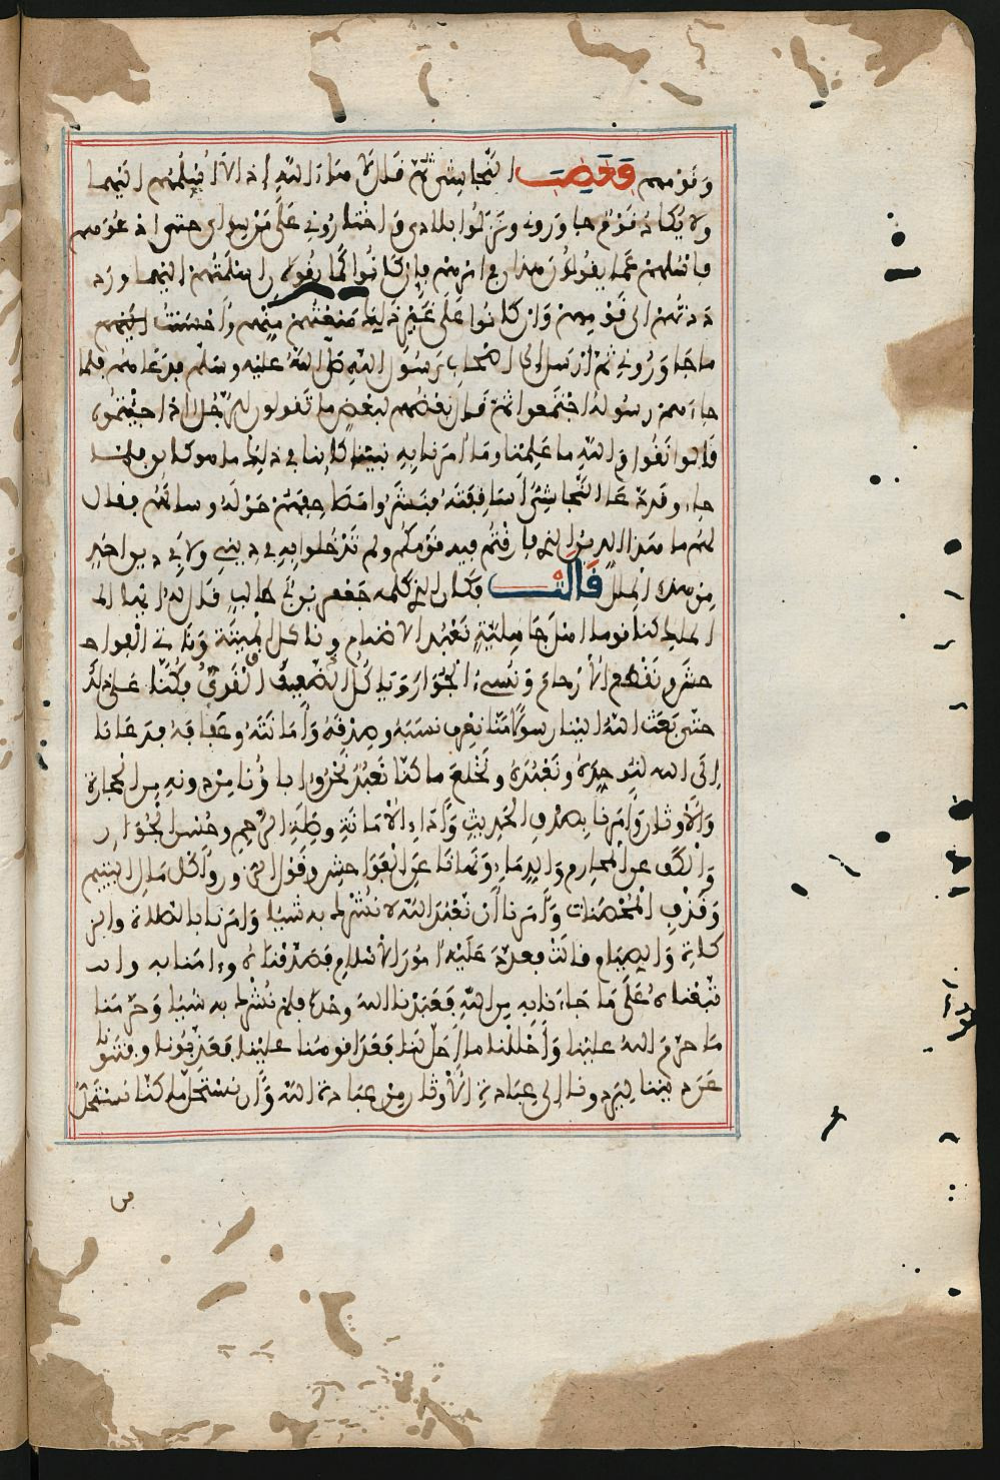 وقومهم فغضب النجاشي ثم قال لا هاء الله إذا لا أسلمهم إليهما
ولا يكاد قوم جاوروني ونزلوا بلادي واختاروني على من سواي حتى ادعوهم
فاسئلهم عما يقولون هذان في امرهم فإن كانوا كما يقولان اسلمتهم إليهما ورد
دتهم الى قومهم وان كانوا على غير ذلك منعتهم منهم وأحسنت
ما جاوروني ثم ارسل الى اصحاب رسول الله صلى الله عليه وسلم فدعاهم فلما
جاءهم رسوله اجتمعوا ثم قال بعضهم لبعض ما تقولون للرجل اذا جئتموه
قالوا نقول والله ما علمنا وما أمرنا به نبينا كائنا في ذلك ما هو كائن فلما
جاءوا وقد دعا النجاشي أساقفته فنشروا مصاحفهم حوله وسالهم فقال
لهم ما هذا الدين الذي فارقتم فيه قومكم ولم تدخلوا به في ديني ولا في دين احد
من هذه الملل قالت فكان الذي كلمه جعفر بن أبي طالب فقال له أيها الملك
كنا قوما أهل جاهلية نعبد الاصنام وناكل الميتة وناتي الفواحش
حش ونقطع الأرحام ونسيء الجوار وياكل القوي الضعيف فكنا على ذلك
حتى بعث الله الينا رسولا منا نعرف نسبه وصدقه وأمانته وعفافه فدعانا
إلى الله لنوحده ونعبده ونخلع ما كنا نعبد نحن وءاباؤنا من دونه من الحجارة
والأوثان وأمرنا بصدق الحديث وأداء الأمانة وصلة الرحم وحسن الجوار
والكف عن المحارم والدماء ونهانا عن الفواحش وقول الزور وأكل مال اليتيم
وقذف المحصنات وأمرنا أن نعبد الله لا نشرك به شيئا وأمرنا بالصلاة والز
كاة والصيام قالت فعدد عليه أمور الاسلام فصدقناه وءامنا به وات
تبعناه على ما جاءنا به من الله فعبدنا الله وحده فلم نشرك به شيئا وحرمنا
ما حرم الله علينا وأحللنا ما أحل لنا فعدا قومنا علينا فعذبونا وفتنونا
عن ديننا ليردونا إلى عبادة الأوثان من عبادة الله وأن نستحل ما كنا نستحل